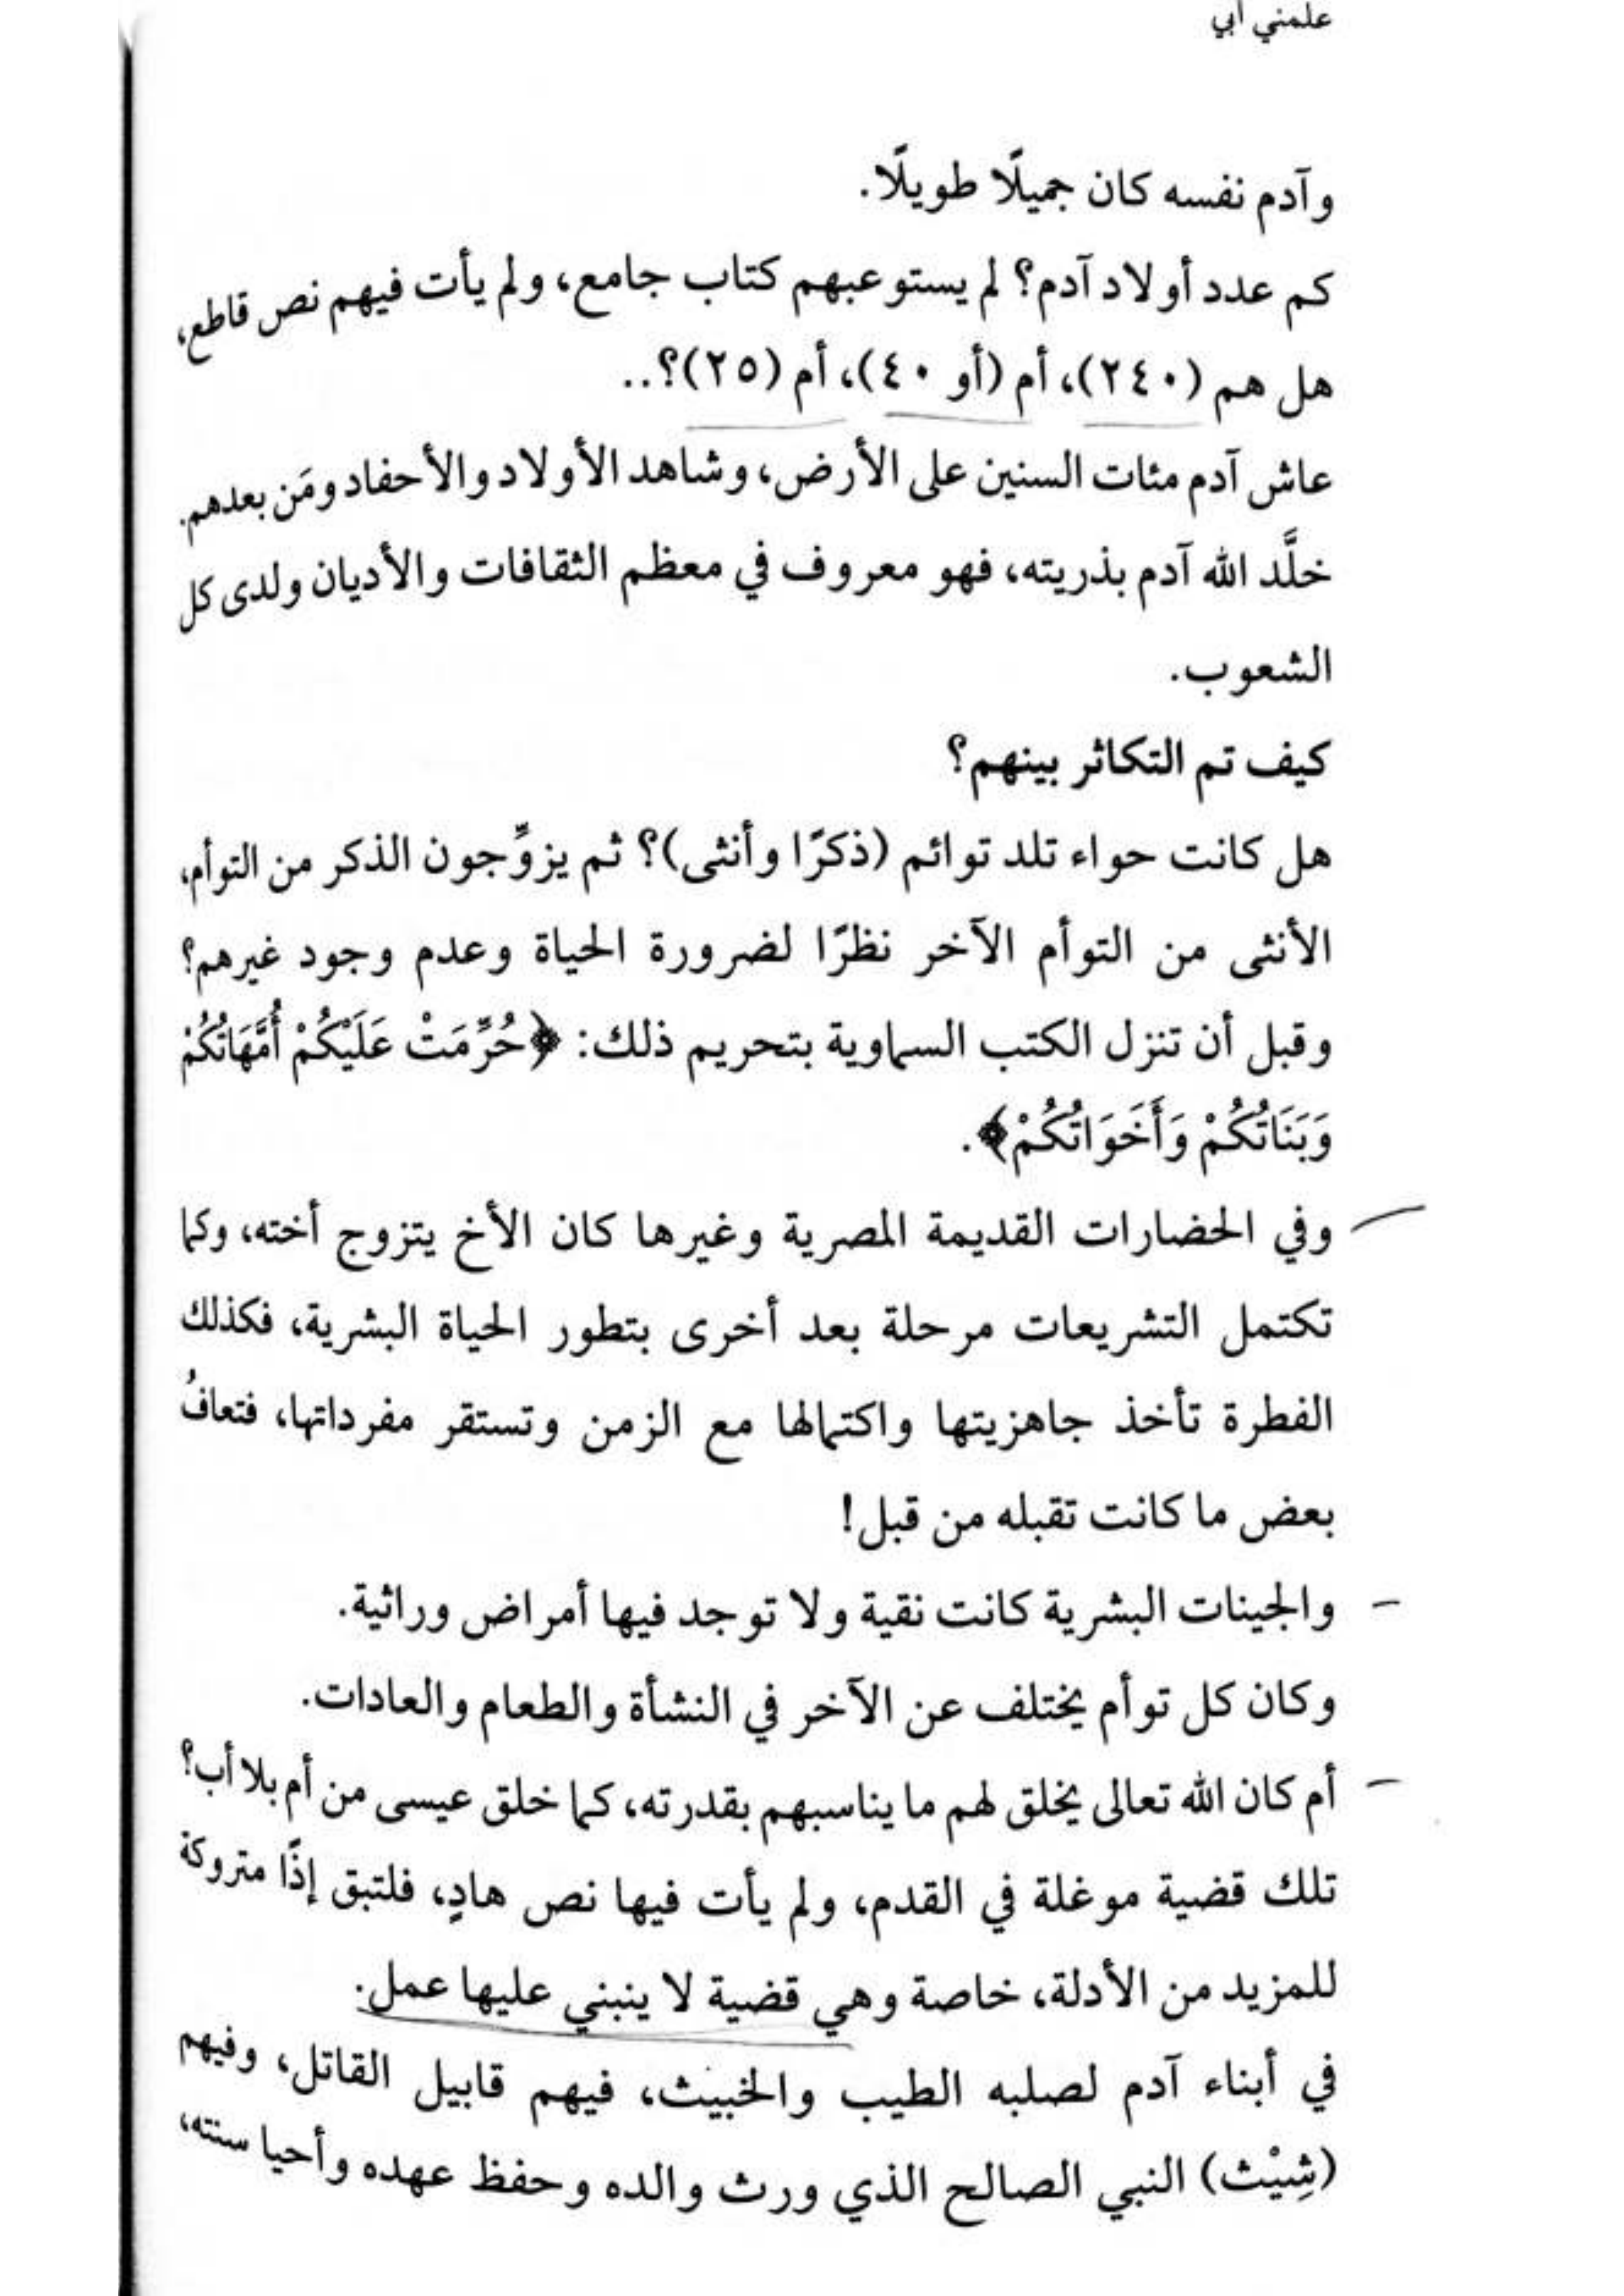 علمني أبي
وآدم نفسه كان جميلًا طويلًا.
كم عدد أولاد آدم؟ لم يستوعبهم كتاب جامع، ولم يأت فيهم نص قاطع،
هل هم (٢٤٠)، أم (أو ٤٠)، أم (٢٥)؟..
عاش آدم مئات السنين على الأرض، وشاهد الأولاد والأحفاد ومَن بعدهم.
خلَّد الله آدم بذريته، فهو معروف في معظم الثقافات والأديان ولدى كل
الشعوب.
كيف تم التكاثر بينهم؟
هل كانت حواء تلد توائم (ذكرًا وأنثى)؟ ثم يزوِّجون الذكر من التوأم،
الأنثى من التوأم الآخر نظرًا لضرورة الحياة وعدم وجود غيرهم؟
وقبل أن تنزل الكتب السماوية بتحريم ذلك: ﴿حُرِّمَتْ عَلَيْكُمْ أُمَّهَاتُكُمْ
وَبَنَاتُكُمْ وَأَخَوَاتُكُمْ﴾.
وفي الحضارات القديمة المصرية وغيرها كان الأخ يتزوج أخته، وكما
تكتمل التشريعات مرحلة بعد أخرى بتطور الحياة البشرية، فكذلك
الفطرة تأخذ جاهزيتها واكتمالها مع الزمن وتستقر مفرداتها، فتعافُ
بعض ما كانت تقبله من قبل!
والجينات البشرية كانت نقية ولا توجد فيها أمراض وراثية.
وكان كل توأم يختلف عن الآخر في النشأة والطعام والعادات.
أم كان الله تعالى يخلق لهم ما يناسبهم بقدرته، كما خلق عيسى من أم بلا أب؟
تلك قضية موغلة في القدم، ولم يأت فيها نص هادٍ، فلتبق إذًا متروكة
للمزيد من الأدلة، خاصة وهي قضية لا ينبني عليها عمل.
في أبناء آدم لصلبه الطيب والخبيث، فيهم قابيل القاتل، وفيهم
(شِيْث) النبي الصالح الذي ورث والده وحفظ عهده وأحيا سنته،